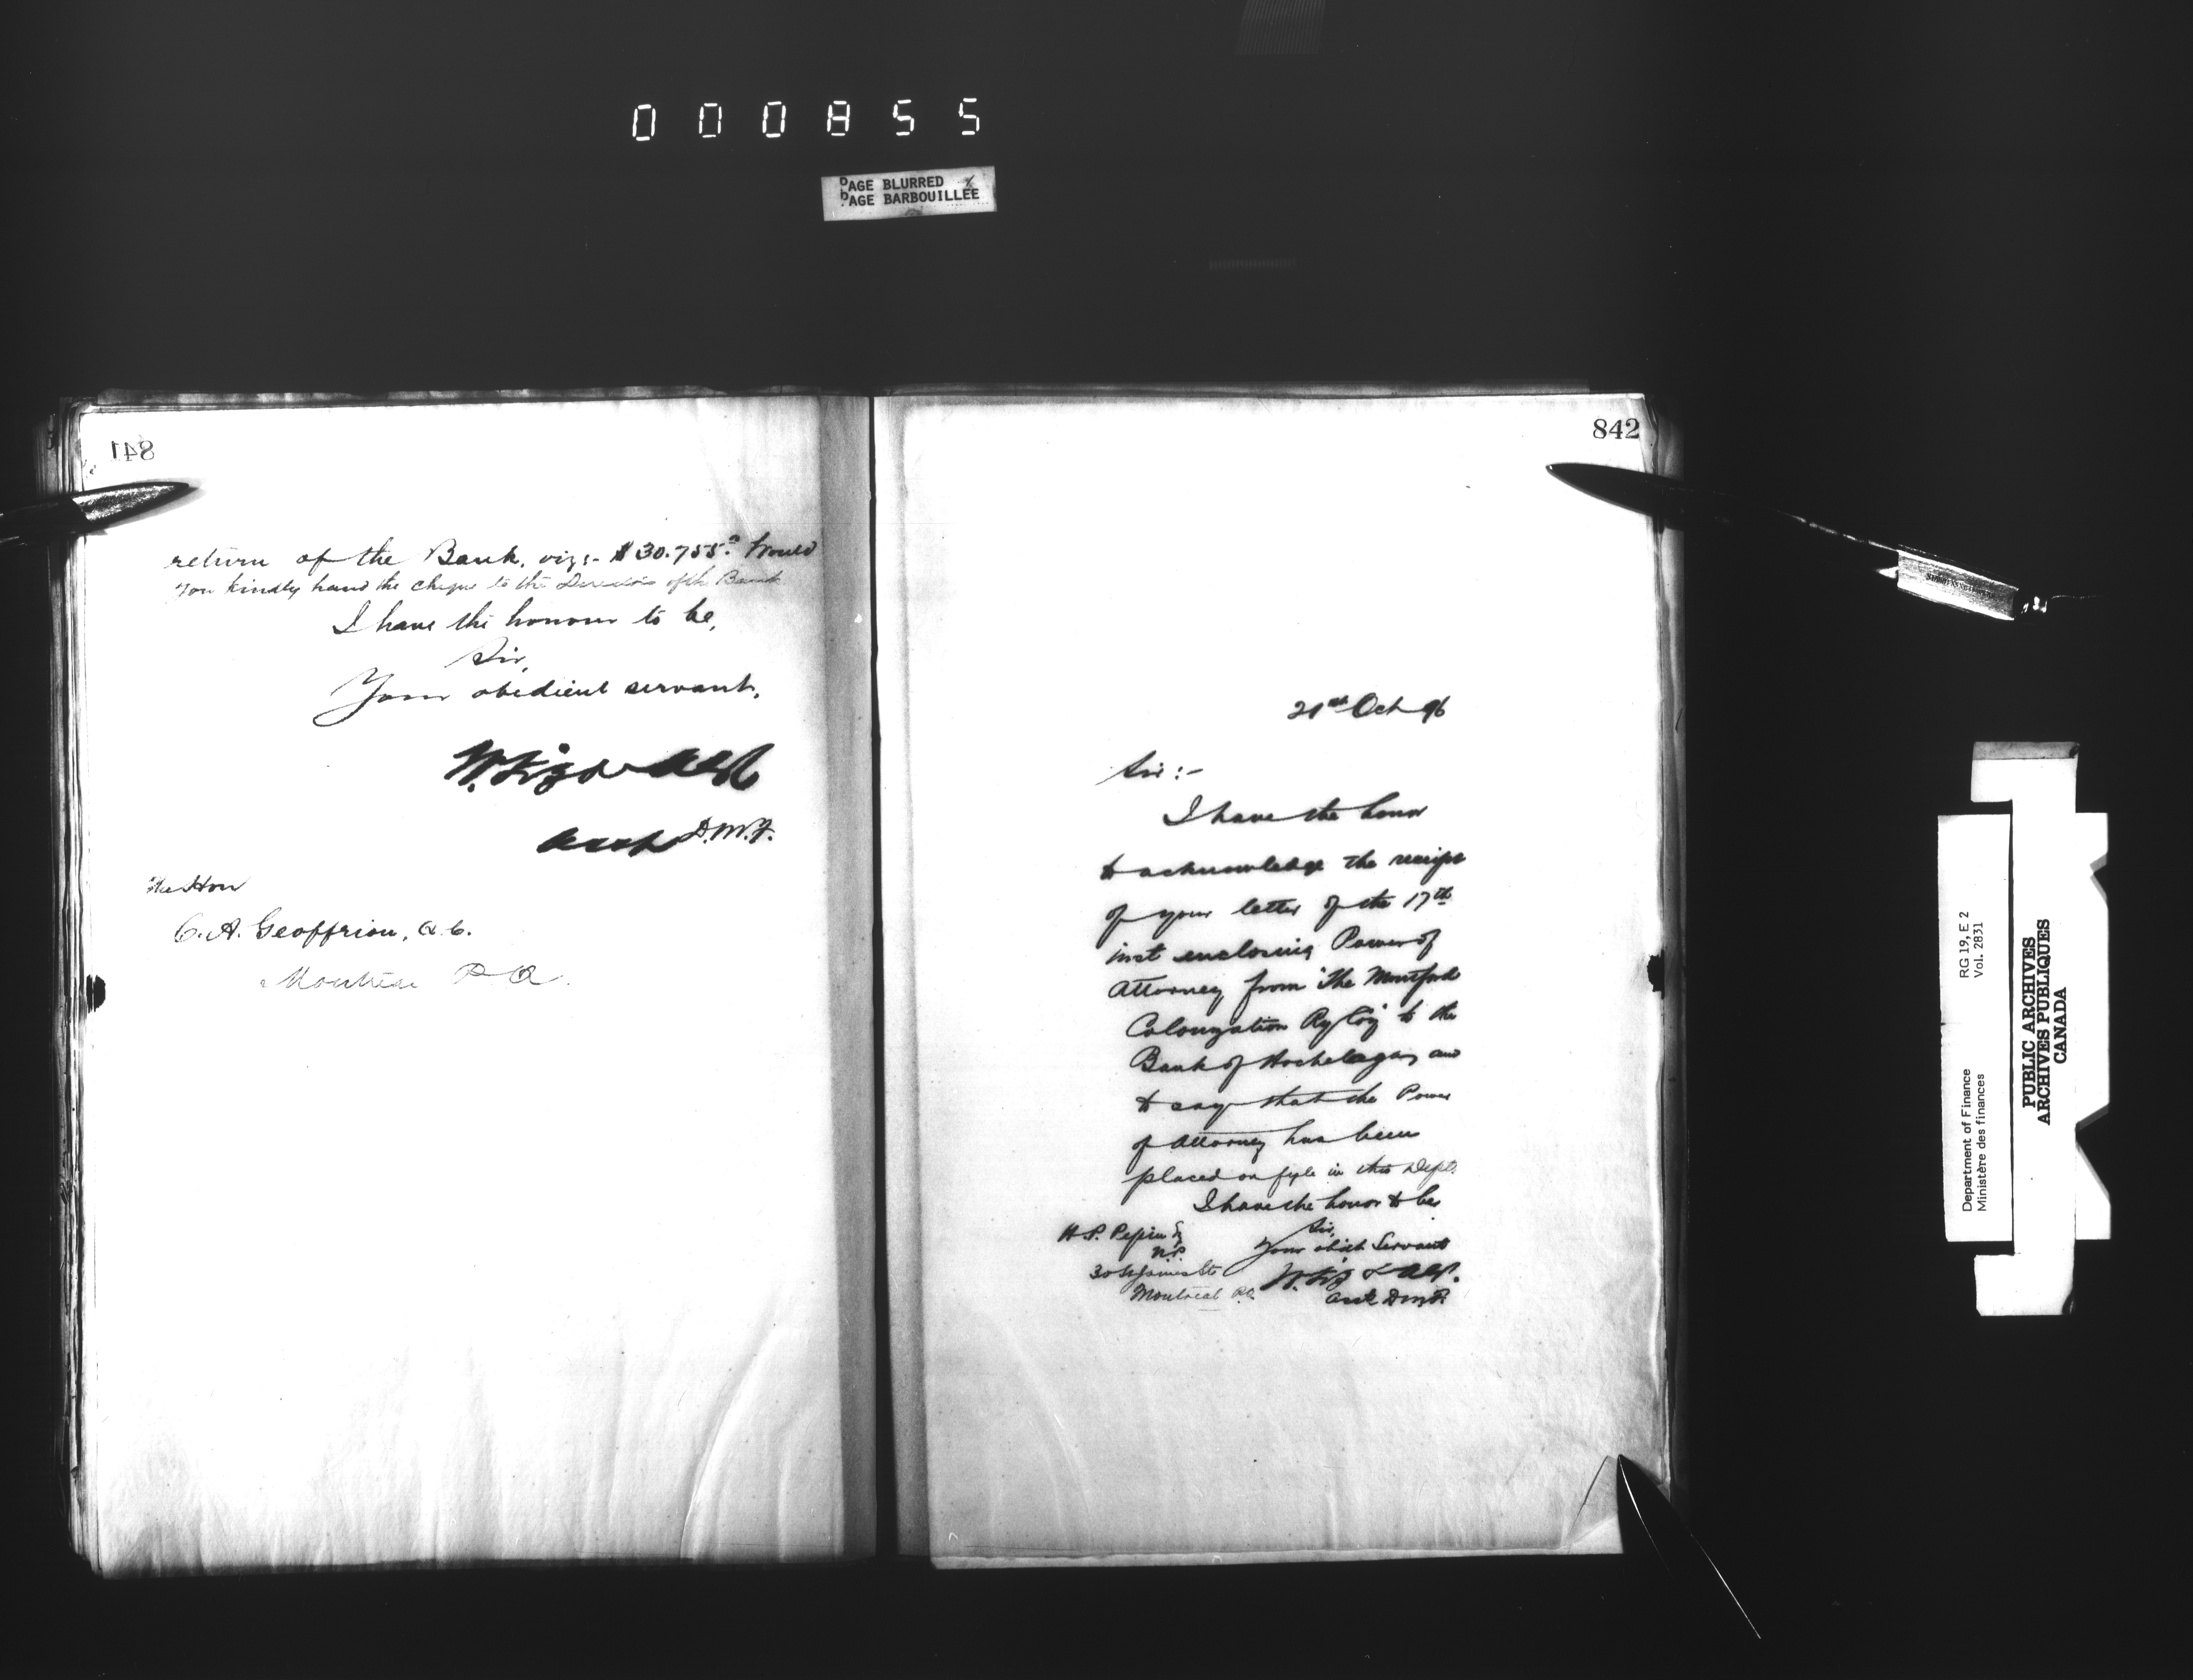 000855
PAGE BLURRED
PAGE BARBOUILLEE
841
return of the Bank, viz:- $30.755. Would
you kindly hand the cheque to the Directors of the Bank
I have the honour to be,
Sir,
Your obedient servant,
W. Fitzgerald
Asst D.M.F.
The Hon
C. A. Geoffrion, Q.C.
Montreal P.Q.
842
21st Oct 96
Sir:-
I have the honor
to acknowledge the receipt
of your letter of the 17th
inst enclosing Power of
Attorney from "The Montford
Colonization Ry Coy" to the
Bank of Hochelaga, and
to say that the Power
of Attorney has been
placed on fyle in this Dept.
I have the honor to be
Sir,
Your obedt Servant
W. Fitzgerald.
Asst D.M.F.
H. P. Pepin Esq
N.P.
30 St James St
Montreal P.Q.
Department of Finance
Ministère des finances
RG 19, E 2
Vol. 2831
PUBLIC ARCHIVES
ARCHIVES PUBLIQUES
CANADA